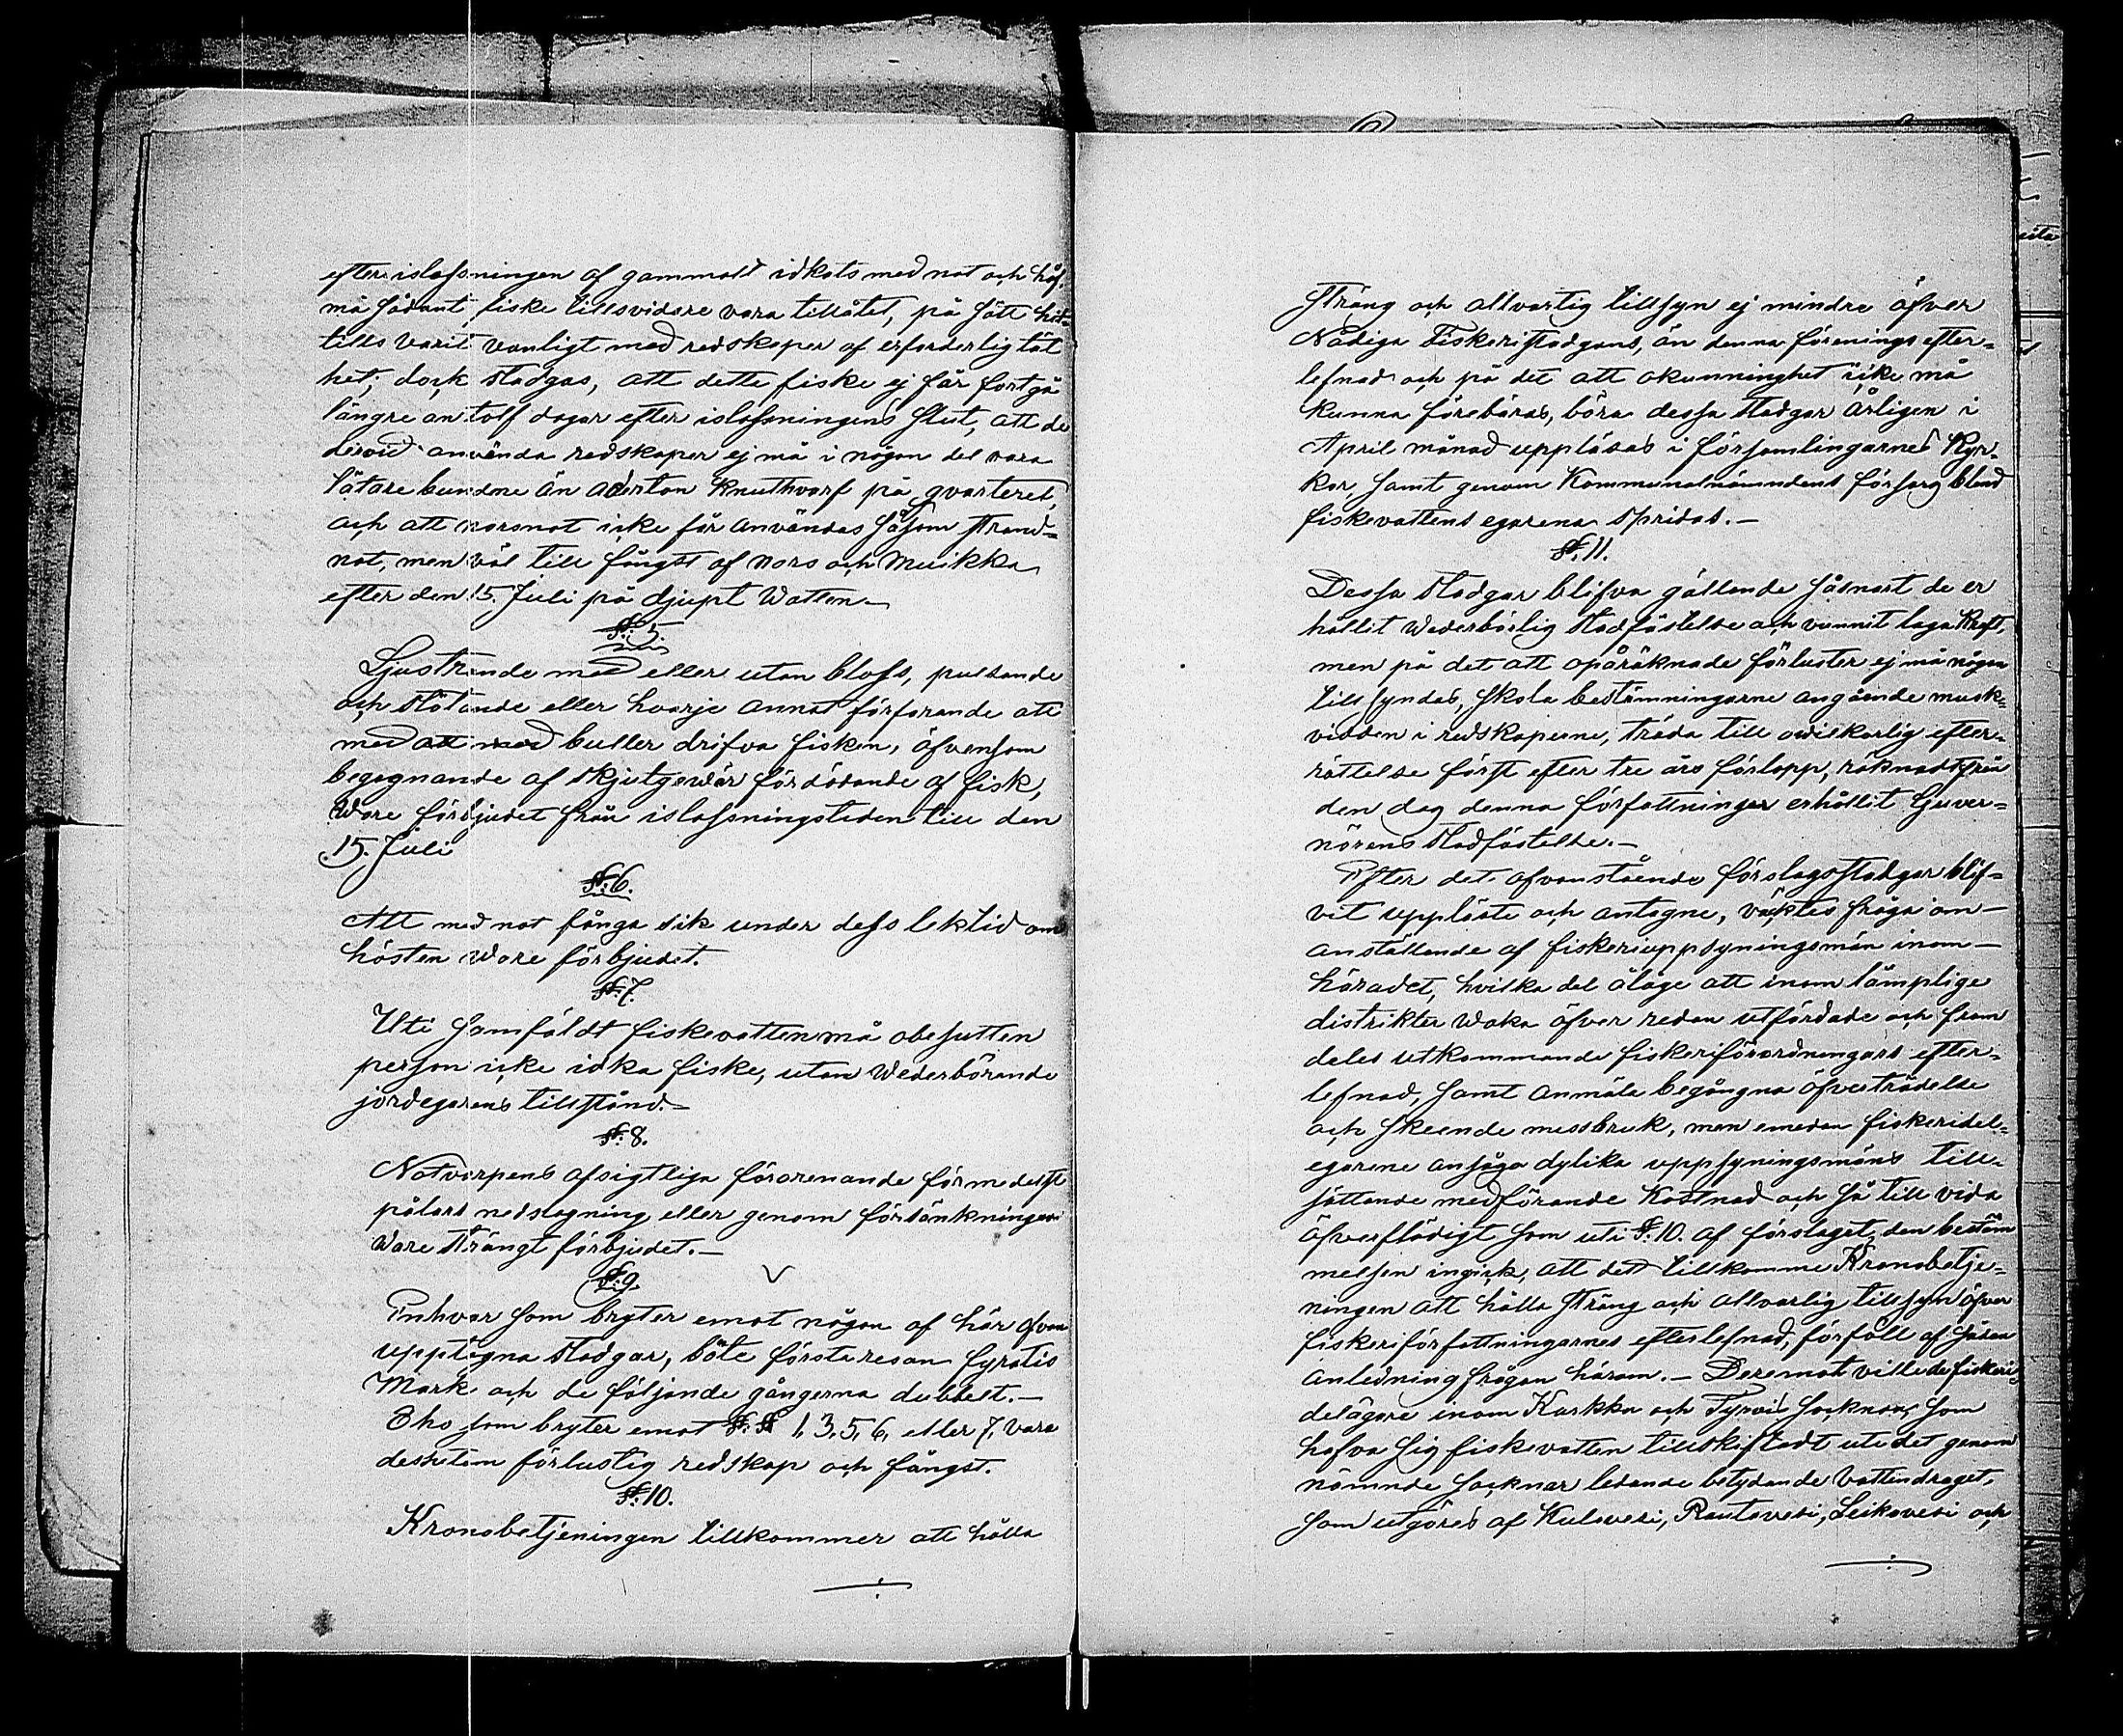 efter islossningen af gammalt idkats med not och håf,
må sådant fiske tillsvidare vara tillåtet, på sätt hit-
tills varit vanligt med redskaper af erforderlig tät
het; dock stadgas, att dette fiske ej får fortgå
längre än tolf dagar efter islossningens slut, att de
dervid använda redskaper ej må i någon del vara
tätare bundne än aderton knuthvarf på qvarteret,
och att norsnot icke får användas såsom strand-
not, men väl till fångst af nors och Muikka
efter den 15. Juli på djupt Watten.—
§. 5.
Ljustrande med eller utan bloss, pulsande
och stötande eller hvarje annat förfarande att
med att med buller drifva fisken, äfvensom
begagnande af skjutgewär för dödande af fisk,
Ware förbjudet från islossningstiden till den
15. Juli
§. 6.
Att med not fånga sik under dess lektid om
hösten Ware förbjudet.
§. 7.
Uti samfäldt fiskevatten må obesutten
person icke idka fiske, utan Wederbörande
jordegarens tillstånd.—
§. 8.
Notvarpens afsigtliga förorenande förmedelst
pålars nedslagning eller genom försänkningar
Ware strängt förbjudet.—
§. 9.
Enhvar som bryter emot någon af här ofvan
upptagna stadgar, böte första resan fyratio
Mark och de följande gångerna dubbelt.—
Eho som bryter emot §. § 1, 3, 5, 6, eller 7, vare
dessutom förlustig redskap och fångst.
§. 10.
Kronobetjeningen tillkommer att hålla
sträng och allvarlig tillsyn ej mindre öfver
Nådiga Fiskeristadgans, än denna förenings efter-
lefnad och på det att okunnighet icke må
kunna förebäras, böra dessa stadgar årligen i
April månad uppläsas i församlingarnes Kyr-
kor, samt genom Kommunalnämndens försorg bland
fiskevattens egarena spridas.—
§. 11.
Dessa stadgar blifva gällande såsnart de er
hållit Wederbörlig stadfästelse och vunnit laga Kraft,
men på det att opåräknade förluster ej må någon
tillsyndas, skola bestämningarne angående mask-
vidden i redskaperne, träda till ovilkorlig efter-
rättelse först efter tre års förlopp, räknadt från
den dag denna författningar erhållit Guver-
nörens stadfästelse.—
Efter det ofvanstående förslagsstadgar blif-
vit uppläste och antagne, väcktes fråga om—
anställande af fiskeriuppsyningsmän inom—
häradet, hvilka det ålåge att inom lämplige
distrikter Waka öfver redan utfärdade och fram
deles utkommande fiskeriförordningars efter-
lefnad, samt anmäla begångna öfverträdelse
och skeende missbruk, men emedan fiskeridel-
egarene ansågo dylika uppsyningsmäns till-
sättande medförande Kostnad och så till vida
öfverflödigt som uti §. 10. af förslaget, den bestäm
melsen ingick, att det tillkomme Kronobetje-
ningen att hålla sträng och allvarlig tillsyn öfver
fiskeriförfattningarnes efterlefnad, förföll af sådan
anledning frågan härom.— Deremot ville de fiskeri-
delägare inom Karkku och Tyrvis socknar, som
hafva sig fiskevatten tillskiftadt uti det genom
nämnde socknar ledande betydande Vattendraget,
som utgöres af Kulovesi, Rautavesi, Leikovesi och